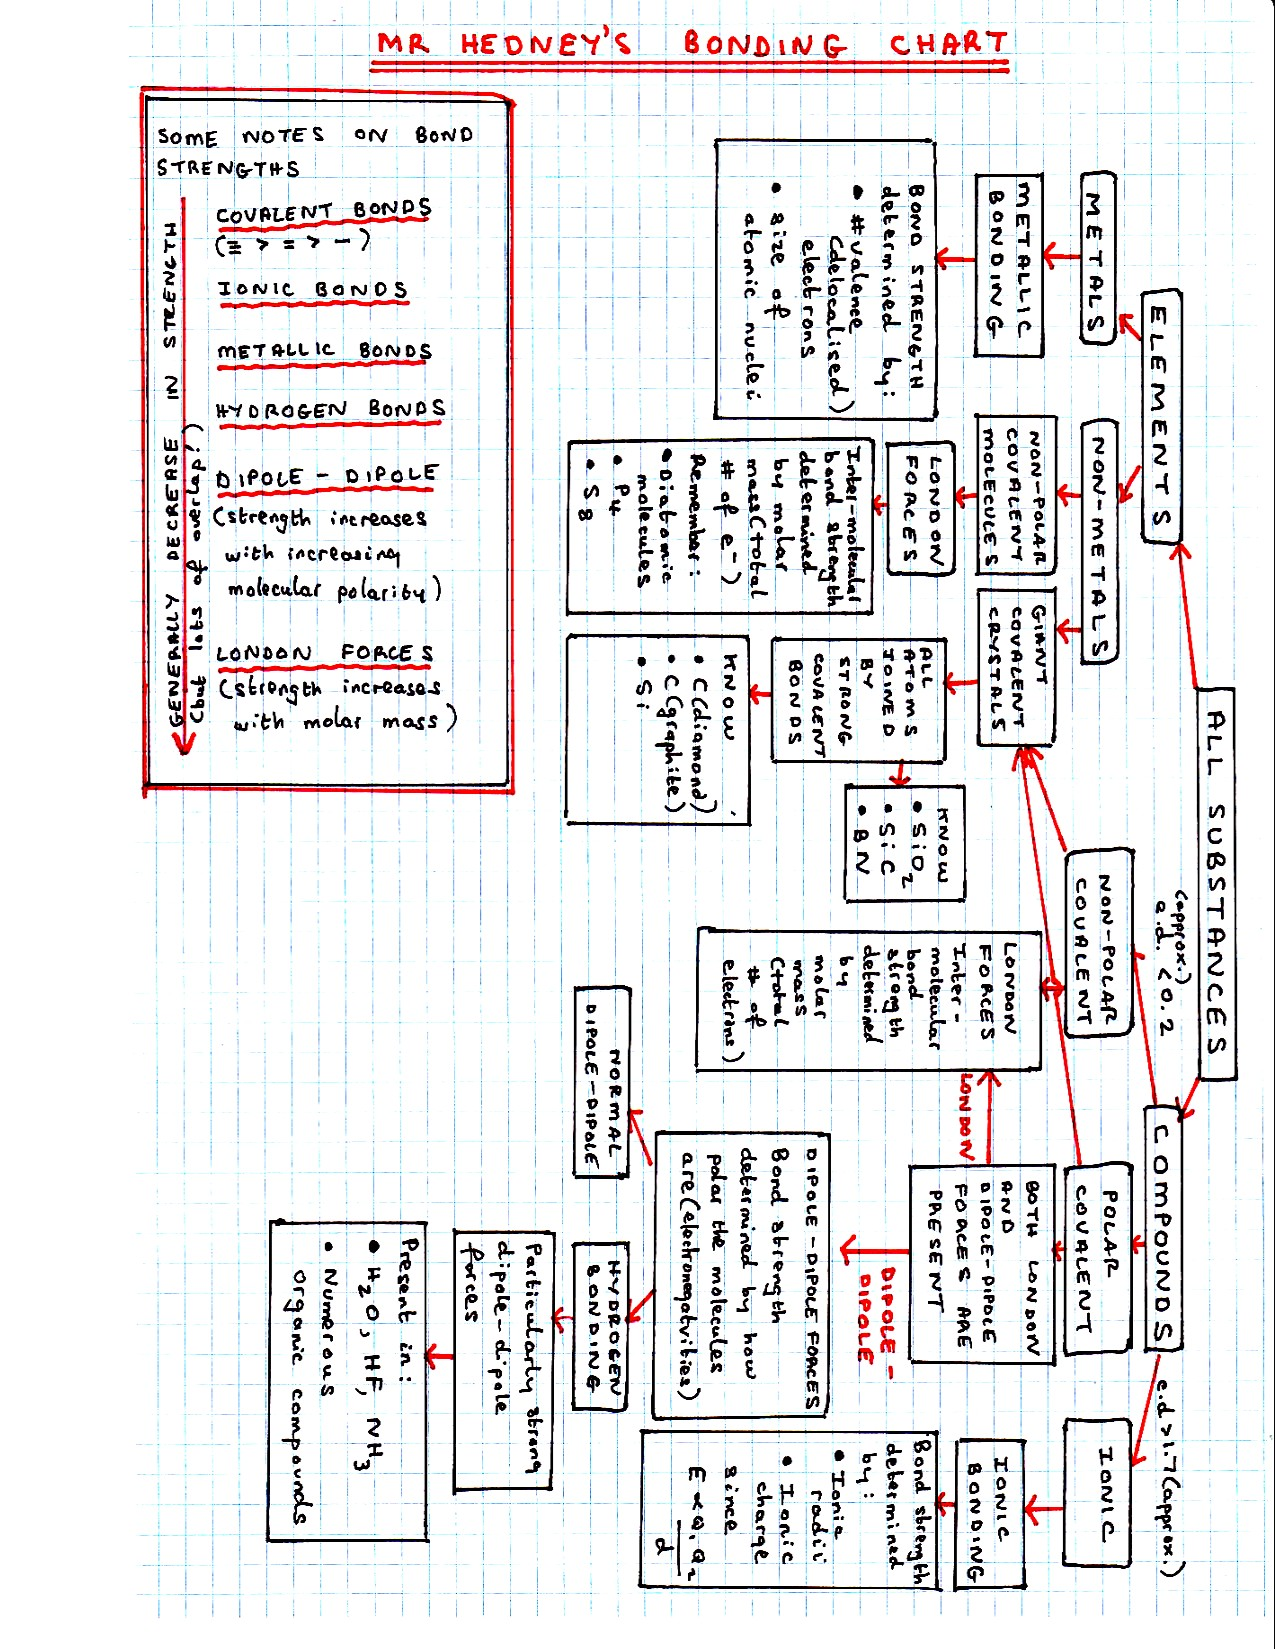 MR HEDNEY'S BONDING CHART
SOME NOTES ON BOND
STRENGTHS
COVALENT BONDS
(≡ > = > -)
IONIC BONDS
METALLIC BONDS
HYDROGEN BONDS
DIPOLE - DIPOLE
(strength increases
with increasing
molecular polarity)
LONDON FORCES
(strength increases
with molar mass)
GENERALLY DECREASE IN STRENGTH
(but lots of overlap!)
ALL SUBSTANCES
ELEMENTS
METALS
METALLIC
BONDING
BOND STRENGTH
determined by:
• # valence
(delocalised)
electrons
• size of
atomic nuclei
NON-METALS
NON-POLAR
COVALENT
MOLECULES
LONDON
FORCES
Inter-molecular
bond strength
determined
by molar
mass (total
# of e-)
Remember:
• Diatomic
molecules
• P4
• S8
GIANT
COVALENT
CRYSTALS
ALL
ATOMS
JOINED
BY
STRONG
COVALENT
BONDS
KNOW
• C(diamond)
• C(graphite)
• Si
KNOW
• SiO2
• SiC
• BN
COMPOUNDS
(approx.)
e.d. < 0.2
NON-POLAR
COVALENT
LONDON
FORCES
Inter-
molecular
bond
strength
determined
by
molar
mass
(total
# of
electrons)
POLAR
COVALENT
BOTH LONDON
AND
DIPOLE-DIPOLE
FORCES ARE
PRESENT
LONDON
DIPOLE-
DIPOLE
DIPOLE-DIPOLE FORCES
Bond strength
determined by how
polar the molecules
are (electronegativities)
NORMAL
DIPOLE-DIPOLE
HYDROGEN
BONDING
Particularly strong
dipole-dipole
forces
Present in:
• H2O, HF, NH3
• Numerous
organic compounds
e.d > 1.7 (approx.)
IONIC
IONIC
BONDING
Bond strength
determined
by:
• Ionic
radii
• Ionic
charge
since
E ∝ Q1Q2
d